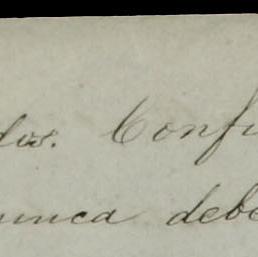 dos. Confi
nunca debe